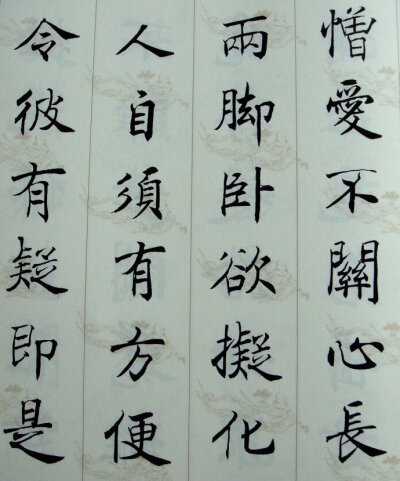 憎愛不關心長
兩脚卧欲擬化
人自須有方便
令彼有疑即是